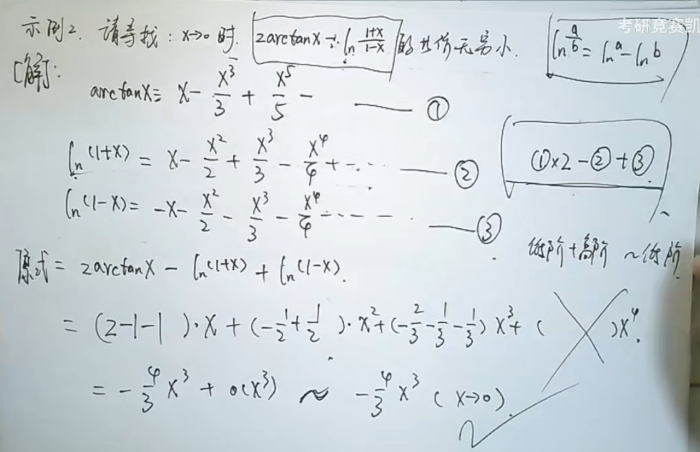 考研竞赛凯
示例2. 请寻找: x→0 时 2arctanx - ln (1+x)/(1-x) 的等价无穷小. ln a/b = ln a - ln b
[解]:
arctanx = x - x³/3 + x⁵/5 - —— ①
ln(1+x) = x - x²/2 + x³/3 - x⁴/4 + …… —— ② ①×2-②+③
ln(1-x) = -x - x²/2 - x³/3 - x⁴/4 ---- —— ③
低阶+高阶 ~低阶
原式 = 2arctanx - ln(1+x) + ln(1-x).
= (2-1-1)·x + (-1/2+1/2)·x² + (-2/3-1/3-1/3) x³ + ( )x⁴.
= -4/3 x³ + o(x³) ~ -4/3 x³ (x→0).